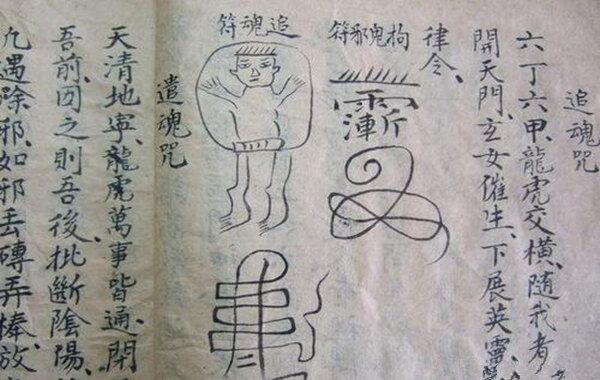 追魂咒
六丁六甲、龍虎交橫、隨我者
開天門、玄女催生、下展英靈
律令、
拘鬼邪符
追魂符
遣魂咒
天清地寧、龍虎萬事皆通、閉
吾前、因之則吾後、批斷陰陽、
凡遇除邪、如邪丟磚弄棒、放